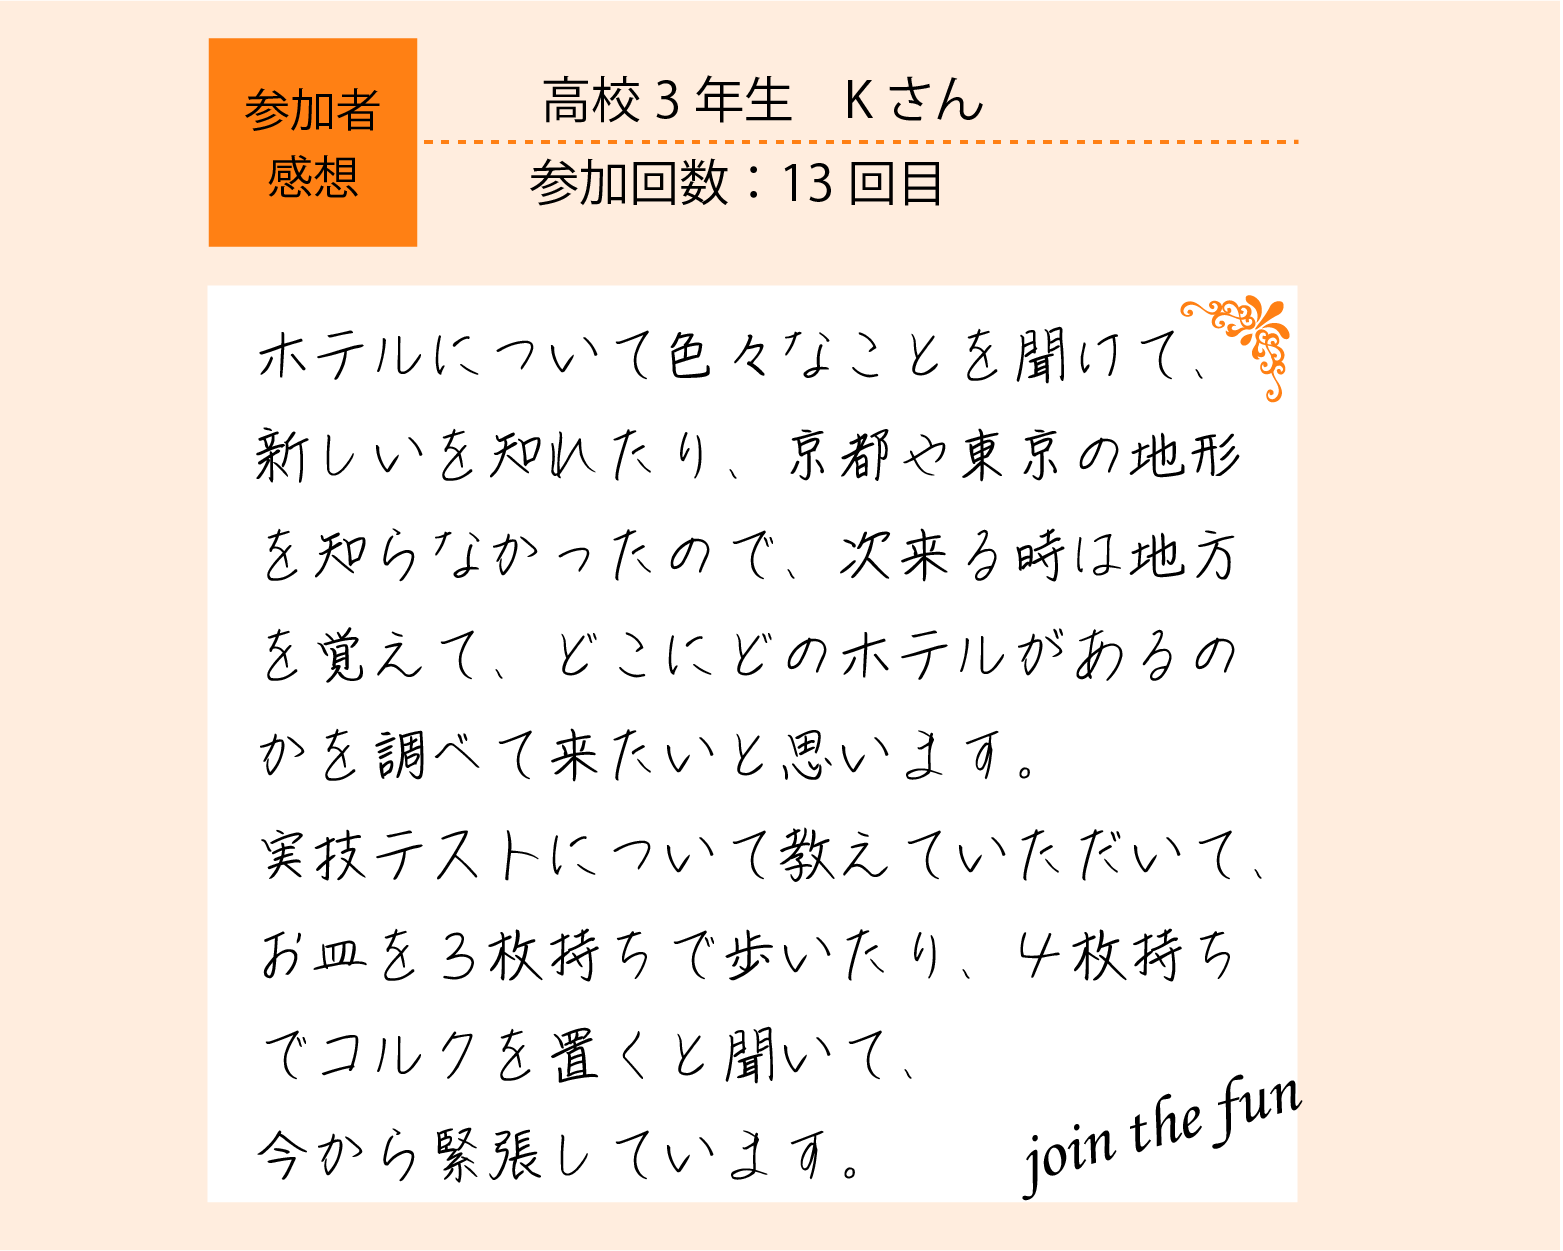 参加者
感想
高校3年生　Kさん
参加回数：13回目
ホテルについて色々なことを聞けて、
新しいを知れたり、京都や東京の地形
を知らなかったので、次来る時は地方
を覚えて、どこにどのホテルがあるの
かを調べて来たいと思います。
実技テストについて教えていただいて、
お皿を3枚持ちで歩いたり、4枚持ち
でコルクを置くと聞いて、
今から緊張しています。
join the fun